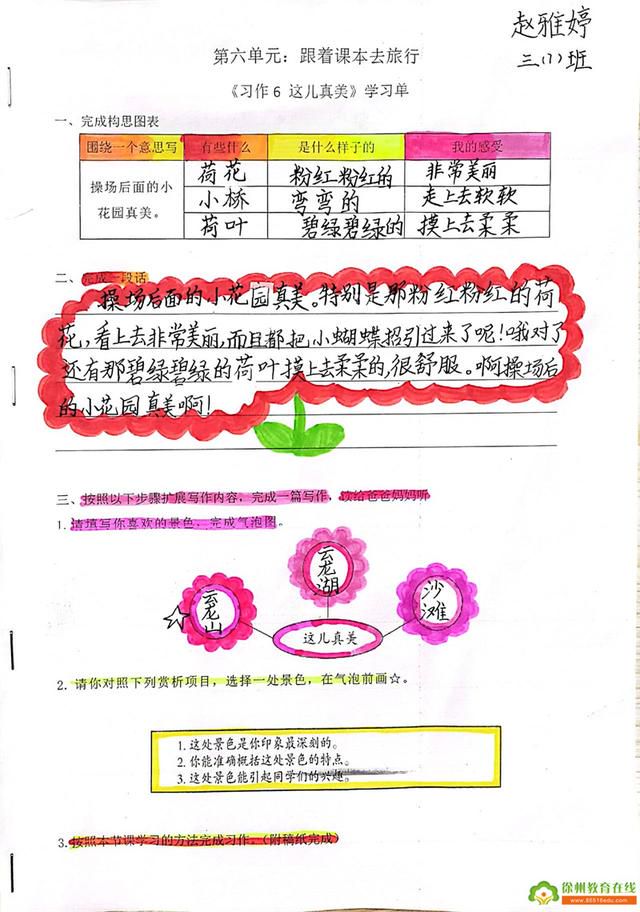 赵雅婷
三(1)班
第六单元：跟着课本去旅行
《习作6 这儿真美》学习单
一、完成构思图表
围绕一个意思写 有些什么 是什么样子的 我的感受
操场后面的小花园真美。 荷花 粉红粉红的 非常美丽
小桥 弯弯的 走上去软软
荷叶 碧绿碧绿的 摸上去柔柔
二、完成一段话
操场后面的小花园真美。特别是那粉红粉红的荷
花，看上去非常美丽，而且都把小蝴蝶招引过来了呢！哦对了
还有那碧绿碧绿的荷叶摸上去柔柔的，很舒服。啊操场后
的小花园真美啊！
三、按照以下步骤扩展写作内容，完成一篇写作，读给爸爸妈妈听
1.请填写你喜欢的景色、完成气泡图。
云龙湖
云龙山
沙滩
这儿真美
2. 请你对照下列赏析项目，选择一处景色，在气泡前画☆。
1.这处景色是你印象最深刻的。
2.你能准确概括这处景色的特点。
3.这处景色能引起同学们的兴趣。
3.按照本节课学习的方法完成习作。（附稿纸完成）
徐州教育在线
www.86516edu.com